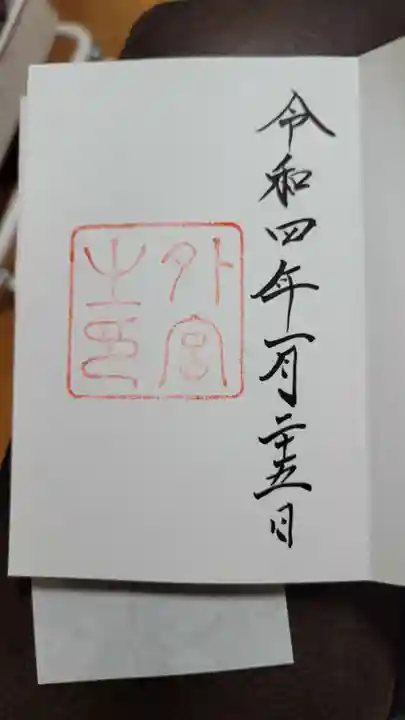 令和四年一月二十五日
外宮
之印